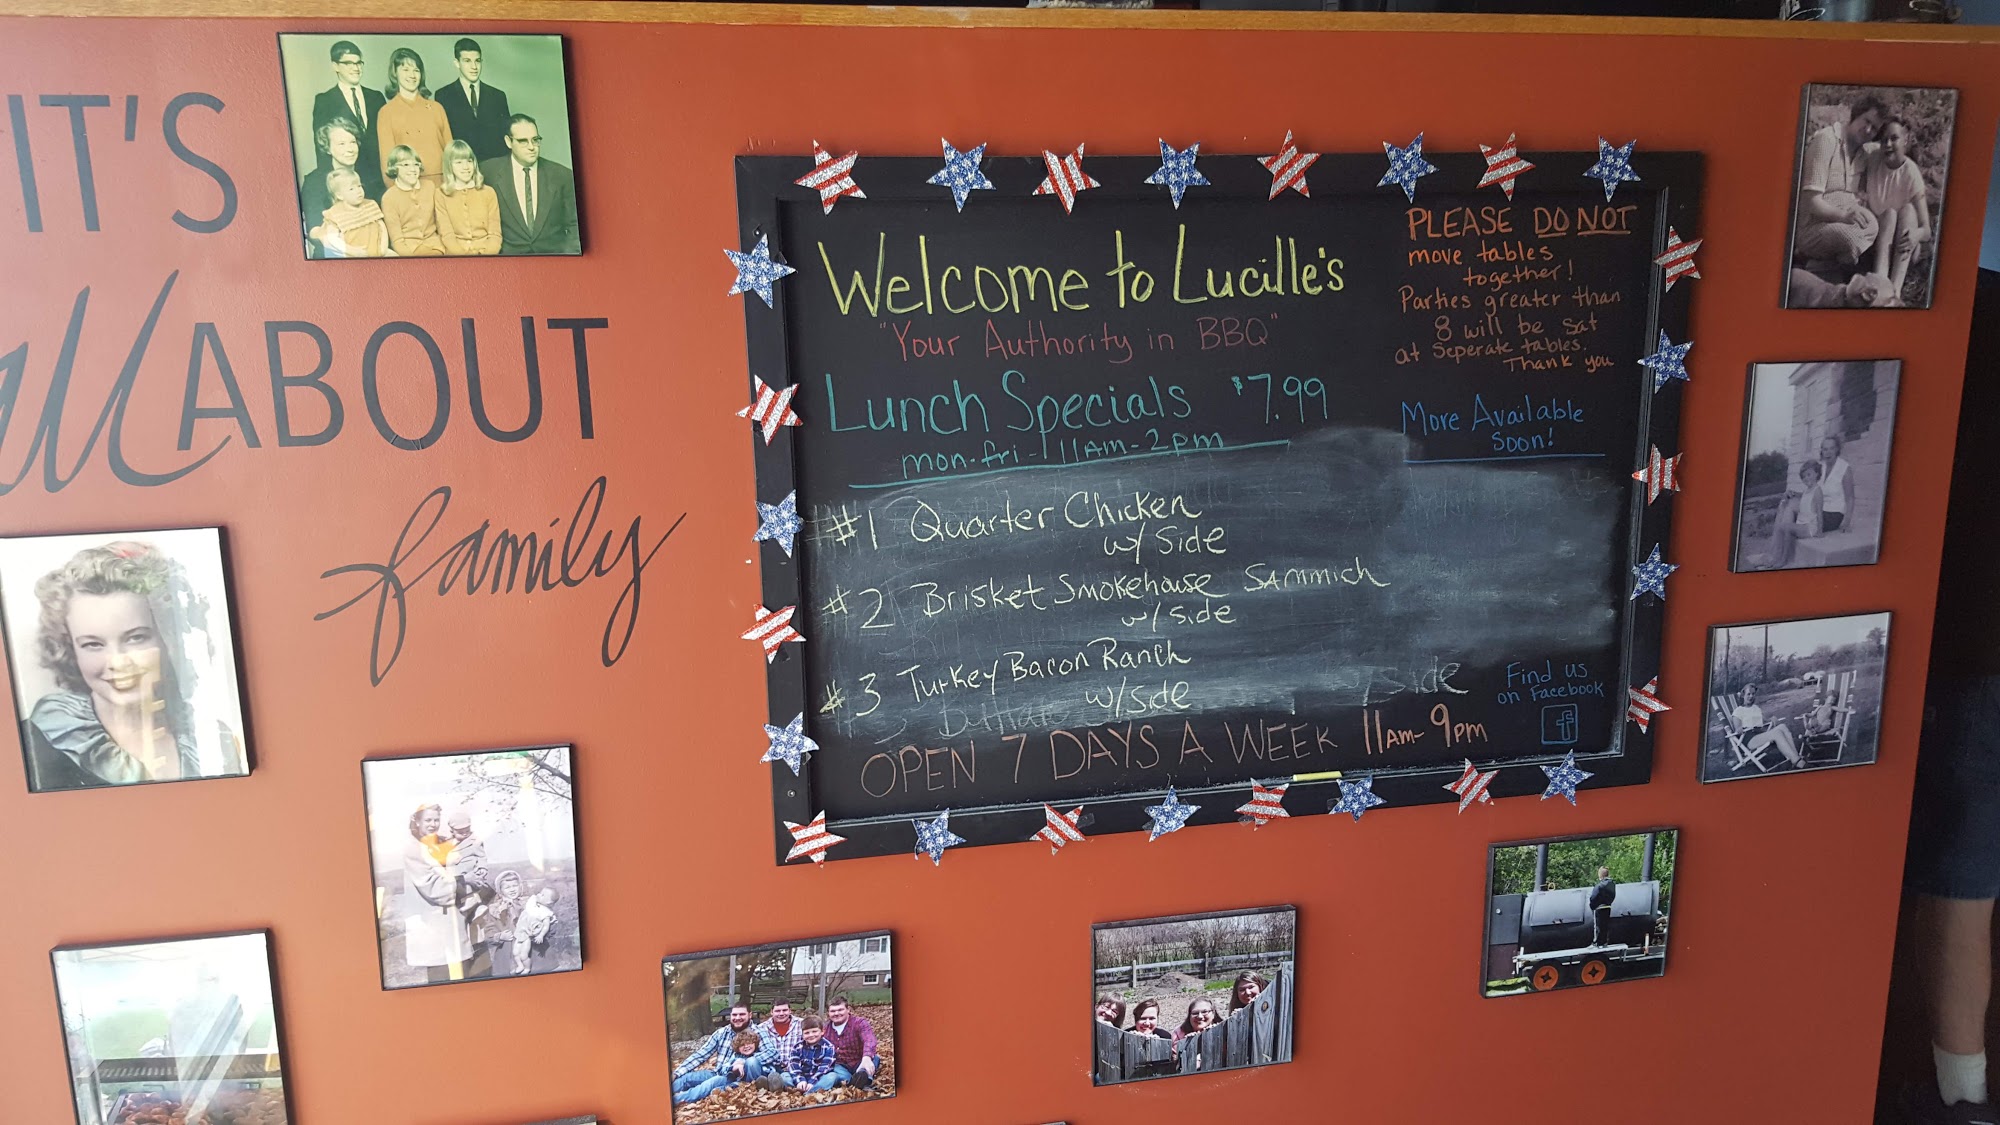 IT'S
All ABOUT
family
Welcome to Lucille's
"Your Authority in BBQ"
Lunch Specials $7.99
mon-fri-11AM-2pm
#1 Quarter Chicken
w/ Side
#2 Brisket Smokehouse SAMMICH
w/ side
#3 Turkey Bacon Ranch
w/ Side
w/ side
OPEN 7 DAYS A WEEK 11AM-9pm
PLEASE DO NOT
move tables
together!
Parties greater than
8 will be sat
at Seperate tables.
Thank you
More Available
Soon!
Find us
on Facebook
f